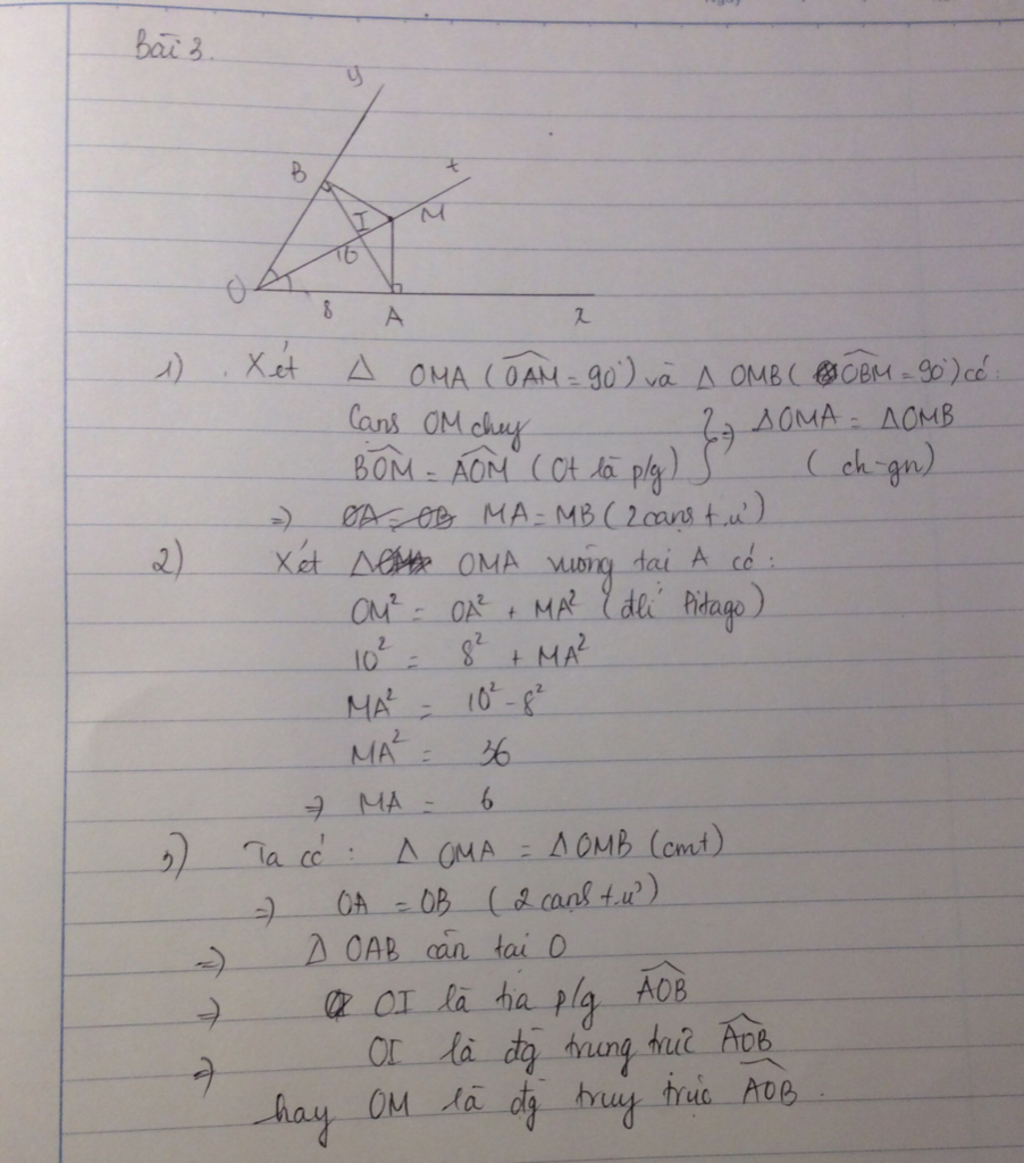 Bài 3.
y
B
t
I
M
10
O
8
A
x
1) . Xét Δ OMA (OAM = 90°) và Δ OMB (OBM = 90°) có:
Cạnh OM chug
BOM = AOM (Ot là p/g) } => ΔOMA = ΔOMB
(ch-gn)
=> MA = MB (2 cạnh t.ư)
2) Xét Δ OMA vuông tại A có:
OM² = OA² + MA² (đlí Pitago)
10² = 8² + MA²
MA² = 10² - 8²
MA² = 36
=> MA = 6
3) Ta có: Δ OMA = Δ OMB (cmt)
=> OA = OB (2 cạnh t.ư)
=> Δ OAB cân tại O
=> OI là tia p/g AOB
=> OI là đg trung trực AOB
hay OM là đg trug trực AOB.